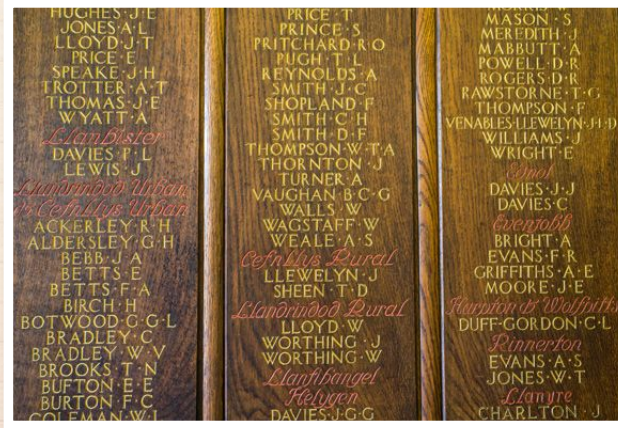 HUGHES·J·E
JONES·A·L
LLOYD·J·T
PRICE·E
SPEAKE·J·H
TROTTER·A·T
THOMAS·J·E
WYATT·A
Llanbister
DAVIES·P·L
LEWIS·J
Llandrindod Urban
& Cefnllys Urban
ACKERLEY·R·H
ALDERSLEY·G·H
BEBB·J·A
BETTS·E
BETTS·F·A
BIRCH·H
BOTWOOD·G·G·L
BRADLEY·C
BRADLEY·W·V
BROOKS·T·N
BUFTON·E·E
BURTON·F·C
COLEMAN·W·L
PRICE·T
PRINCE·S
PRITCHARD·R·O
PUGH·T·L
REYNOLDS·A
SMITH·J·C
SHOPLAND·F
SMITH·C·H
SMITH·D·F
THOMPSON·W·T·A
THORNTON·J
TURNER·A
VAUGHAN·B·C·G
WALLS·W
WAGSTAFF·W
WEALE·A·S
Cefnllys Rural
LLEWELYN·J
SHEEN·T·D
Llandrindod Rural
LLOYD·W
WORTHING·J
WORTHING·W
Llanfihangel
Helygen
DAVIES·J·G·G
MORRIS·W
MASON·S
MEREDITH·J
MABBUTT·A
POWELL·D·R
ROGERS·D·R
RAWSTORNE·T·G
THOMPSON·F
VENABLES·LLEWELYN·J·L·D
WILLIAMS·J
WRIGHT·E
DAVIES·J·J
DAVIES·C
Evenjobb
BRIGHT·A
EVANS·F·R
GRIFFITHS·A·E
MOORE·J·E
Harpton & Wolfpitts
DUFF-GORDON·C·L
Kinnerton
EVANS·A·S
JONES·W·T
Llanyre
CHARLTON·J